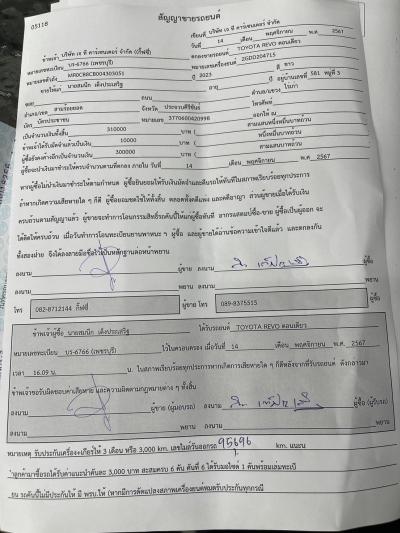 05118
สัญญาขายรถยนต์
เขียนที่ บริษัท เจ ที คาร์เซนเตอร์ จำกัด
วันที่ 14 เดือน พฤศจิกายน พ.ศ. 2567
ข้าพเจ้า บริษัท เจ ที คาร์เซนเตอร์ จำกัด (กี้ฟซี่) ตกลงขายรถยนต์ TOYOTA REVO ตอนเดียว
หมายเลขทะเบียน บร-6766 (เพชรบุรี) หมายเลขเครื่องยนต์ 2GDD204715
หมายเลขตัวถัง MR0CB8CB004305051 ปี 2023 สี ขาว
ขายให้แก่ นายสมนึก เต็งประเสริฐ อายุ ปี อยู่บ้านเลขที่ 581 หมู่ที่ 3
ซอย ถนน ตำบล/แขวง ไร่เก่า
อำเภอ/เขต สามร้อยยอด จังหวัด ประจวบคีรีขันธ์ โทรศัพท์
บัตร บัตรประชาชน หมายเลข 3770600420998 ออกให้ ณ
เป็นจำนวนเงินทั้งสิ้น 310000 บาท ( สามแสนหนึ่งหมื่นบาทถ้วน
ข้าพเจ้าได้รับมัดจำแล้วเป็นเงิน 10000 บาท ( หนึ่งหมื่นบาทถ้วน
ผู้ซื้อยังคงค้างอีกเป็นจำนวนเงิน 300000 บาท ( สามแสนบาทถ้วน
ผู้ซื้อจะนำเงินมาชำระให้ครบจำนวนตามที่ตกลง ภายใน วันที่ 14 เดือน พฤศจิกายน พ.ศ. 2567
หากผู้ซื้อไม่นำเงินมาชำระให้ตามกำหนด ผู้ซื้อยินยอมให้ริบเงินมัดจำและคืนรถให้ทันทีในสภาพเรียบร้อยทุกประการ
ถ้าหากเกิดความเสียหายใด ๆ ก็ดี ผู้ซื้อยอมชดใช้ให้ทั้งสิ้น ตลอดทั้งคดีแพ่ง และคดีอาญา ส่วนผู้ขายเมื่อได้รับเงิน
ครบถ้วนตามสัญญาแล้ว ผู้ขายจะทำการโอนกรรมสิทธิ์รถคันนี้ให้แก่ผู้ซื้อทันที อากรแสตมป์ซื้อ-ขาย ผู้ซื้อเป็นผู้ออก จะ
ได้คิดให้ครบถ้วน เมื่อวันทำการโอนทะเบียนยานพาหนะ ๆ ผู้ซื้อ และผู้ขายได้อ่านข้อความเข้าใจดีแล้ว และตกลงกัน
ทั้งสองฝ่าย จึงได้ลงลายมือชื่อไว้เป็นหลักฐานต่อหน้าพยาน
ลงนาม ผู้ขาย ลงนาม ผู้ซื้อ
ลงนาม พยาน ลงนาม พยาน
โทร 082-8712144 กี้ฟซี่ ผู้ขาย โทร 089-8375515 ผู้ซื้อ
ข้าพเจ้าผู้ซื้อ นายสมนึก เต็งประเสริฐ ได้รับรถยนต์ TOYOTA REVO ตอนเดียว
หมายเลขทะเบียน บร-6766 (เพชรบุรี) ไว้ในครอบครอง เมื่อวันที่ 14 เดือน พฤศจิกายน พ.ศ. 2567
เวลา 16.09 น. ในสภาพเรียบร้อยทุกประการหากเกิดการเสียหายใด ๆ ก็ดีหลังจากที่รับรถยนต์ ดังกล่าวมา
ข้าพเจ้าขอรับผิดชอบค่าเสียหาย และความผิดตามกฎหมายต่าง ๆ ทั้งสิ้น
ลงนาม ผู้ขาย (ผู้มอบรถ) ลงนาม ผู้ซื้อ (ผู้รับรถ)
ลงนาม พยาน ลงนาม พยาน
หมายเหตุ รับประกันเครื่อง+เกียร์ให้ 3 เดือน หรือ 3,000 km. เลขไมล์วันออกรถ 95696 km. แนะนำ
ลูกค้ามาซื้อรถได้รับค่าแนะนำคันละ 3,000 บาท สะสมครบ 6 คัน คันที่ 6 ได้รับมอไซค์ 1 คันพร้อมเล่มทะเบี
ยน รถคันนี้ไม่มีประกันให้ มี พรบ.ให้ (หากมีการดัดแปลงสภาพเครื่องยนต์หมดรับประกันทุกกรณี